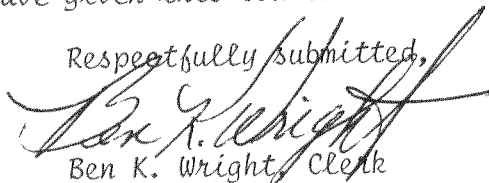 ave given
Respectfully submitted,
Ben K. Wright
Ben K. Wright, Clerk